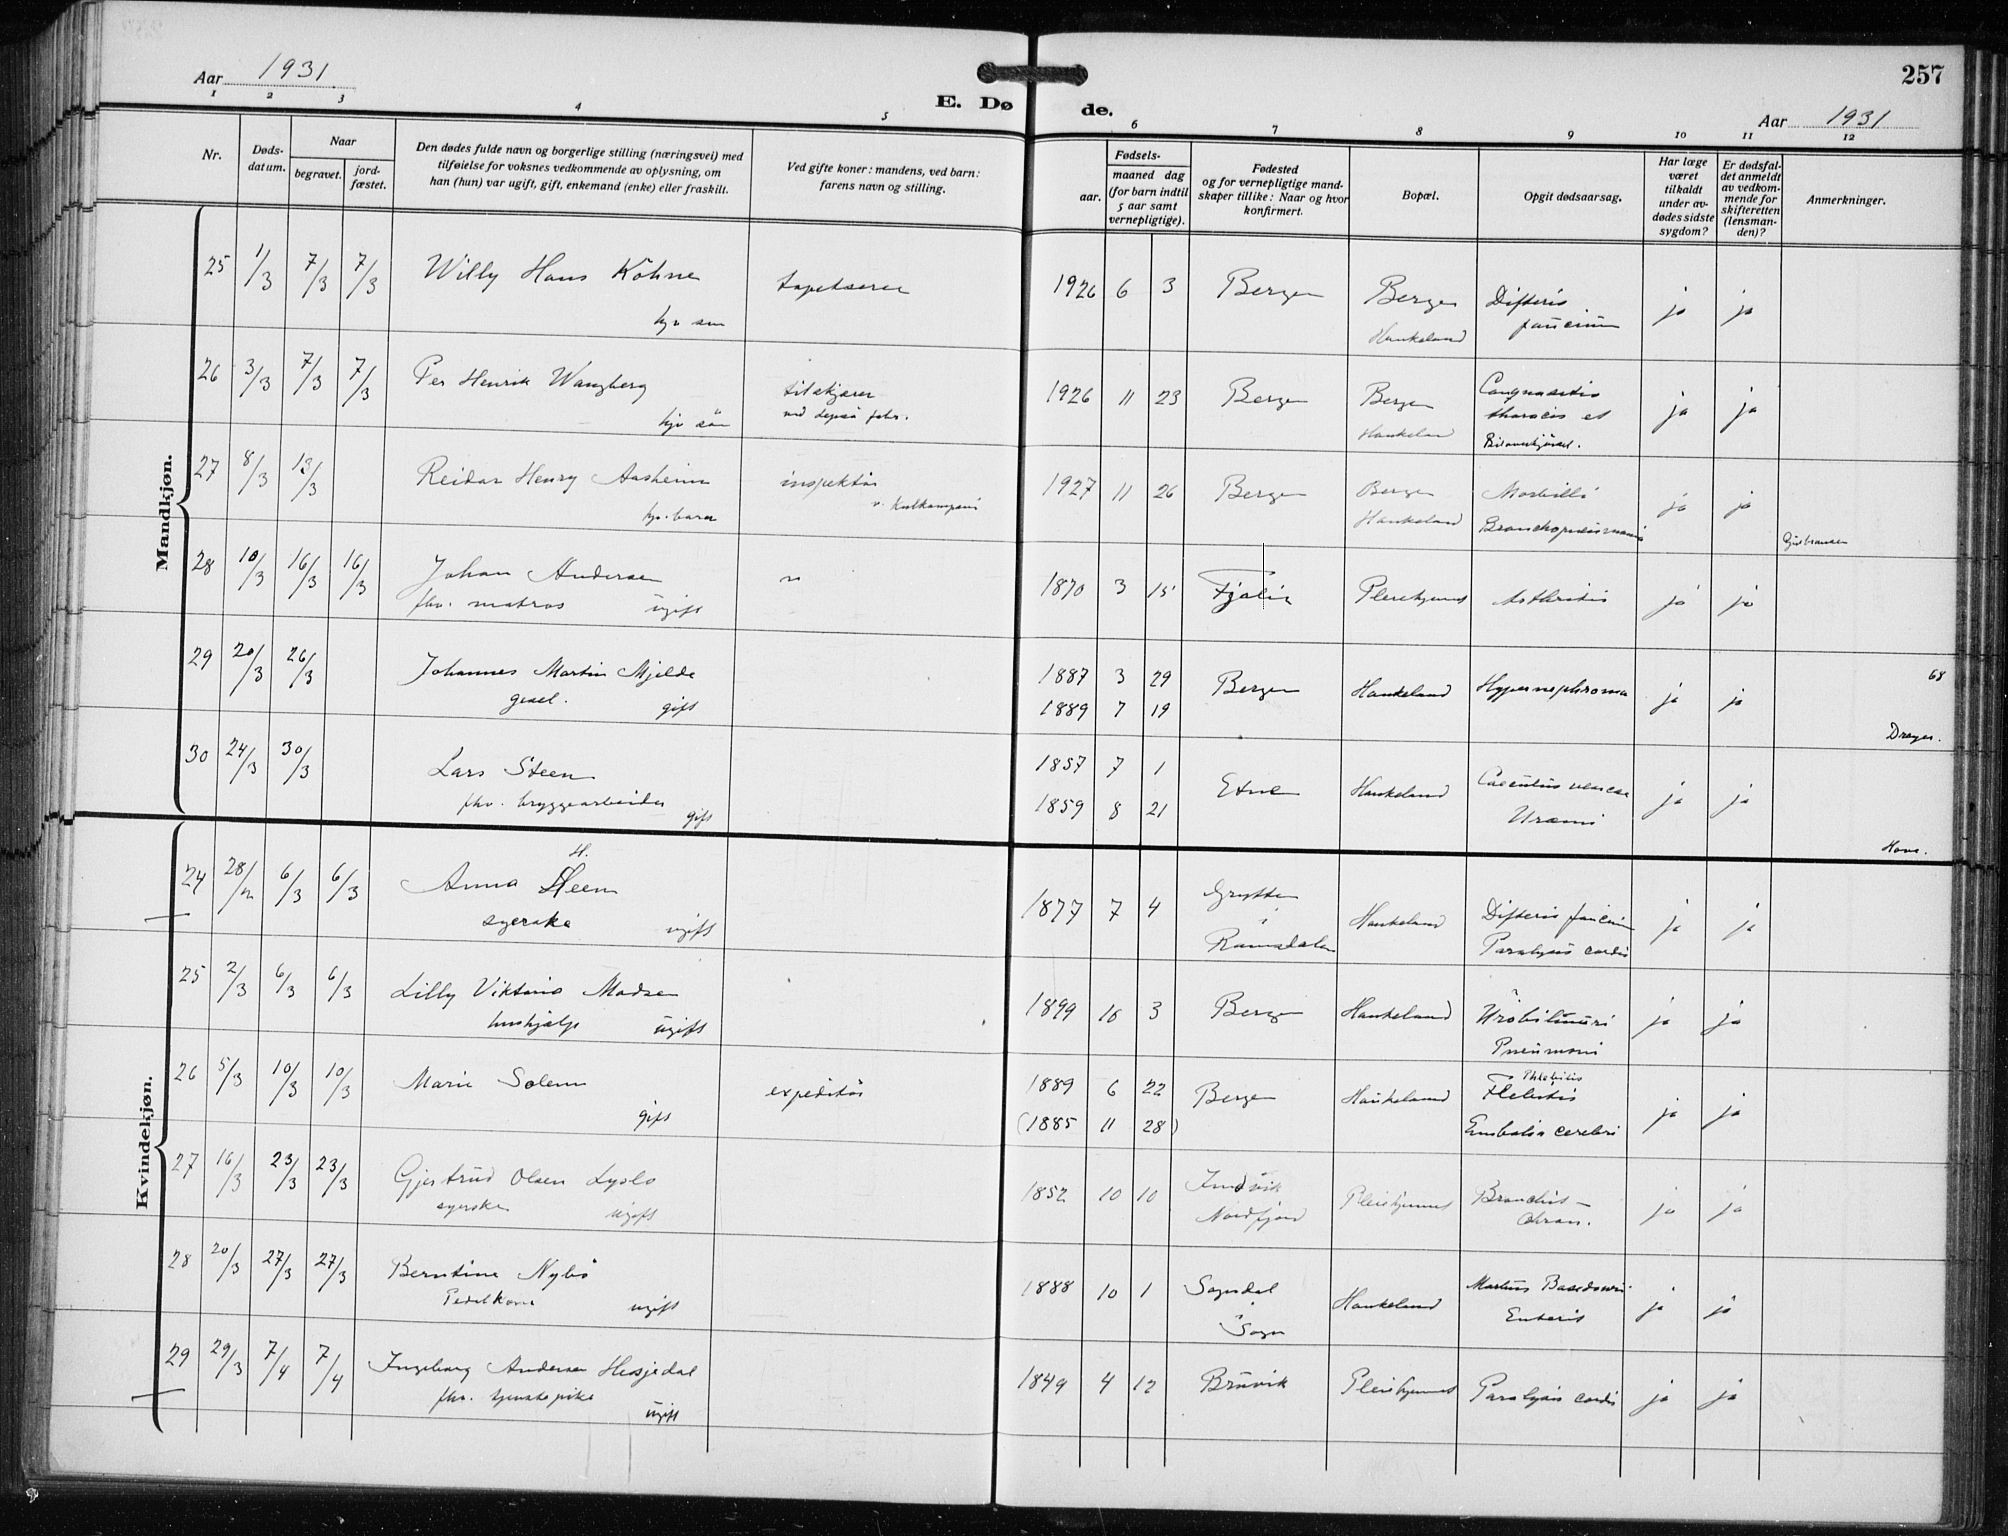 257
Aar 1931
E. Dø de.
Aar 1931
1 2 3 4 5 6 7 8 9 10 11 12
Nr.
Døds-
datum.
Naar
begravet.
jord-
fæstet.
Den dødes fulde navn og borgerlige stilling (næringsvei) med
tilføielse for voksnes vedkommende av oplysning, om
han (hun) var ugift, gift, enkemand (enke) eller fraskilt.
Ved gifte koner: mandens, ved barn:
farens navn og stilling.
Fødsels-
aar.
maaned dag
(for barn indtil
5 aar samt
vernepligtige).
Fødested
og for vernepligtige mand-
skaper tillike: Naar og hvor
konfirmert.
Bopæl.
Opgit dødsaarsag.
Har læge
været
tilkaldt
under av-
dødes sidste
sygdom?
Er dødsfal-
det anmeldt
av vedkom-
mende for
skifteretten
(lensman-
den)?
Anmerkninger.
Mandkjøn.
25 1/3 7/3 7/3 Willy Hans Köhne tapetserer 1926 6 3 Bergen Bergen Difteris ja ja
faucium
Haukeland
26 3/3 7/3 7/3 Per Henrik Wangberg tilskjærer 1926 11 23 Bergen Bergen ja ja
thoracis et
Haukeland
27 8/3 13/3 Reidar Henry Aasheim inspektør 1927 11 26 Bergen Bergen Morbilli ja ja
Haukeland Bronchopneumoni
28 10/3 16/3 16/3 Johan Andersen 1870 3 15 Pleiehjemmet ja ja
fhv. matros ugift
29 20/3 26/3 Johannes Martin Mjelde 1887 3 29 Bergen Haukeland Hypernephroma ja ja 68
gift 1889 7 19
Dreyer.
30 24/3 30/3 Lars Steen 1857 7 1 Etne Haukeland ja ja
fhv. bryggearbeider gift 1859 8 21 Uræmi
Kvindekjøn.
24 28/2 6/3 6/3 Anna Heen H. 1877 7 4 Grytten Haukeland Difteris faucium ja ja
syerske ugift i
Romsdalen Paralysis cordis
25 2/3 6/3 6/3 Lilly Viktoria Madsen 1899 10 3 Bergen Haukeland Urobilinuri ja ja
hushjælp ugift Pneumoni
26 5/3 10/3 10/3 Marie Solem expeditør 1889 6 22 Bergen Haukeland Flebitis ja ja
gift (1885 11 28) Embolia cerebri
27 16/3 23/3 23/3 Gjertrud Olsen 1852 10 10 Indvik Pleiehjemmet Bronchit ja ja
syerske ugift Nordfjord chron.
28 20/3 27/3 27/3 Berntine Nybø 1888 10 1 Sogndal Haukeland Morbus Basedowii ja ja
ugift i
Sogn Enterit
29 29/3 7/4 7/4 Ingeborg Andersen Hesjedal 1849 4 12 Bruvik Pleiehjemmet Paralysis cordis ja ja
fhv. tjenestepike ugift